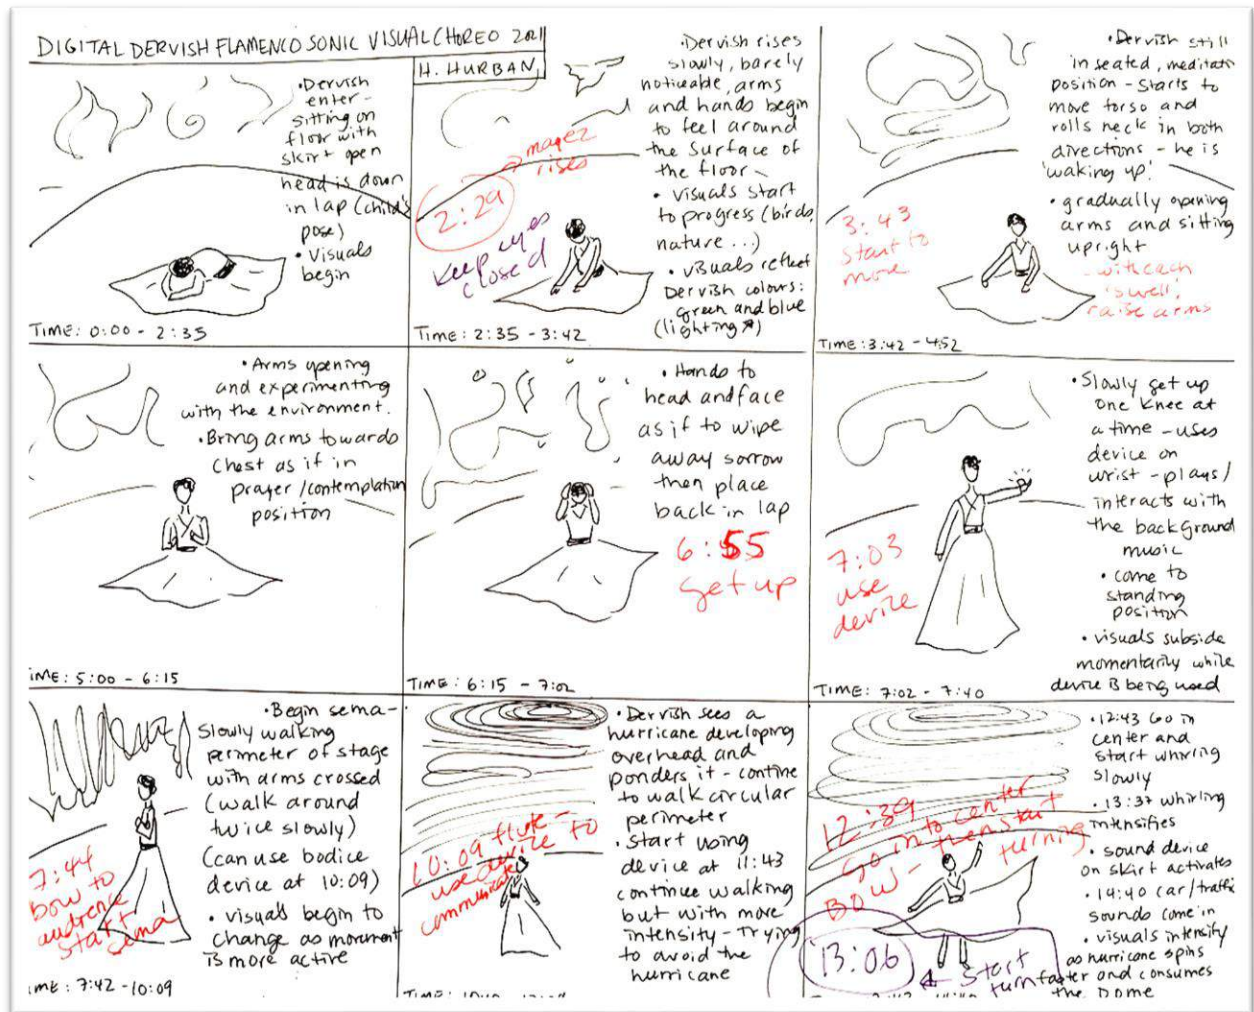 DIGITAL DERVISH FLAMENCO SONIC VISUAL CHOREO 2021
H. HURBAN
• Dervish
enter -
sitting on
floor with
skirt open
head is down
in lap (child's
pose)
• Visuals
begin
TIME: 0:00 - 2:35
• Dervish rises
slowly, barely
noticeable, arms
and hands begin
to feel around
the surface of
the floor -
• visuals start
to progress (birds,
nature ...)
• visuals reflect
Dervish colours:
green and blue
(lighting)
2:29
rises
Keep eyes
closed
TIME: 2:35 - 3:42
• Dervish still
in seated, meditati
position - starts to
move torso and
rolls neck in both
directions - he is
'waking up'.
• gradually opening
arms and sitting
upright
- with each
'swell',
raise arms
3:43
start to
move
TIME: 3:42 - 4:52
• Arms opening
and experimenting
with the environment.
• Bring arms towards
chest as if in
prayer/contemplation
position
IME: 5:00 - 6:15
• Hands to
head and face
as if to wipe
away sorrow
then place
back in lap
6:55
get up
TIME: 6:15 - 7:02
• Slowly get up
one knee at
a time - uses
device on
wrist - plays/
interacts with
the background
music
• come to
standing
position
• visuals subside
momentarily while
device is being used
7:03
use
device
TIME: 7:02 - 7:40
• Begin sema -
Slowly walking
perimeter of stage
with arms crossed
(walk around
twice slowly)
(can use bodice
device at 10:09)
• visuals begin to
change as movement
is more active
7:44
bow to
audience
start
sema
IME: 7:42 - 10:09
• Dervish sees a
hurricane developing
overhead and
ponders it - contine
to walk circular
perimeter
• Start using
device at 11:43
continue walking
but with more
intensity - Trying
to avoid the
hurricane
10:09 flute -
use device to
communicate
TIME:
• 12:43 Go in
center and
start whirling
slowly
• 13:37 whirling
intensifies
• sound device
on skirt activates
• 14:40 car/traffic
sounds come in
• visuals intensify
as hurricane spins
faster and consumes
the Dome
12:39
Go into center
Bow - then start
turning
13:06
start
turn